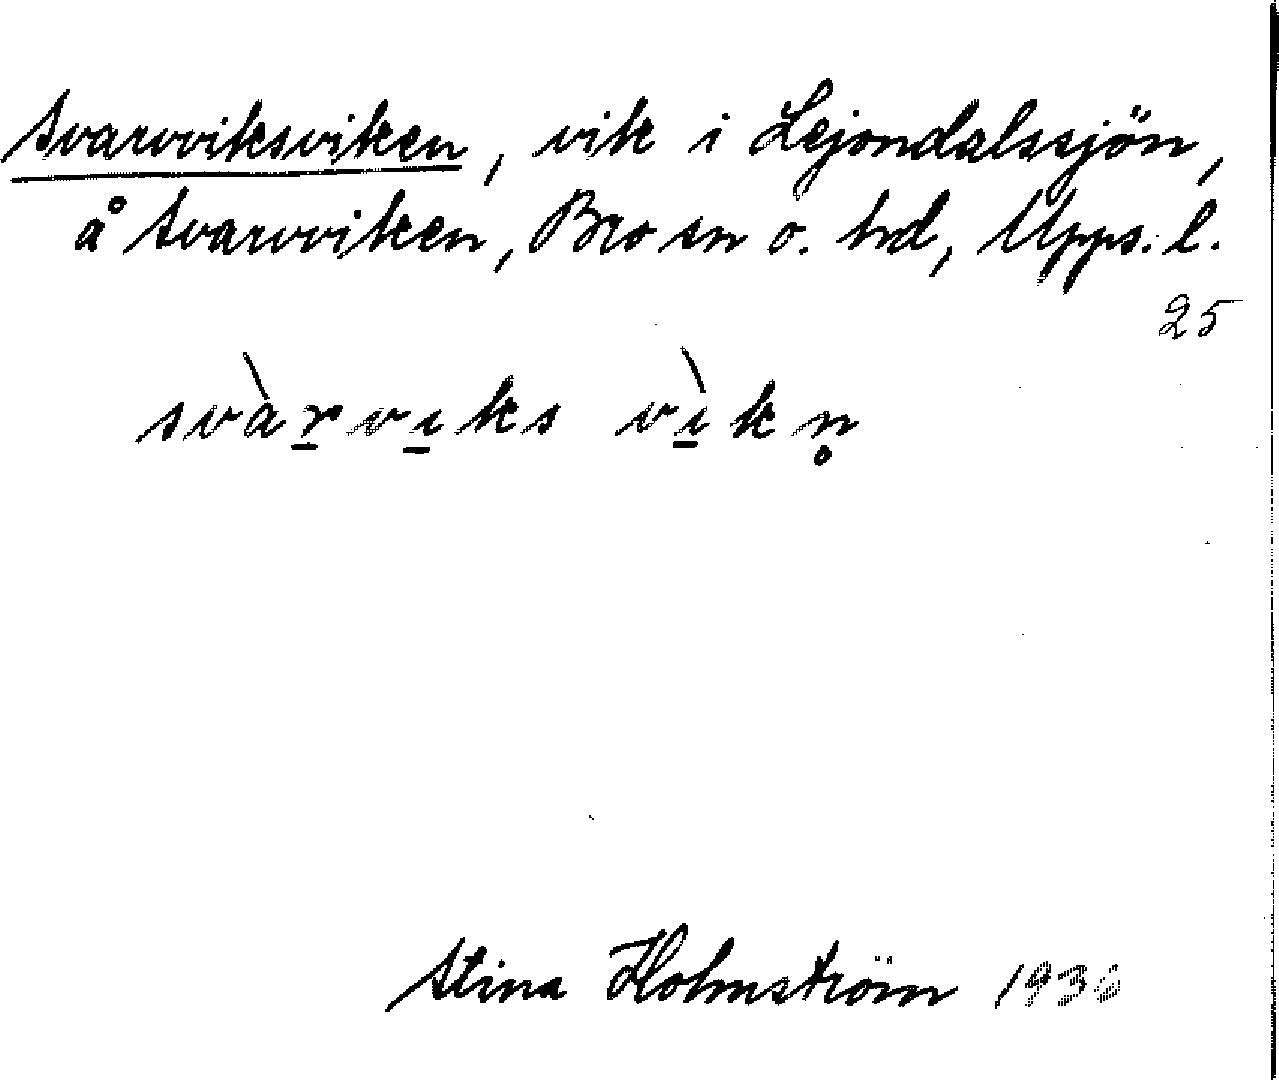 Svarvviksviken, vik i Lejondalssjön,
å Svarvviken, Bro sn o. hd, Upps. l.
25
svàrviks vìkn̥
Stina Holmström 1930